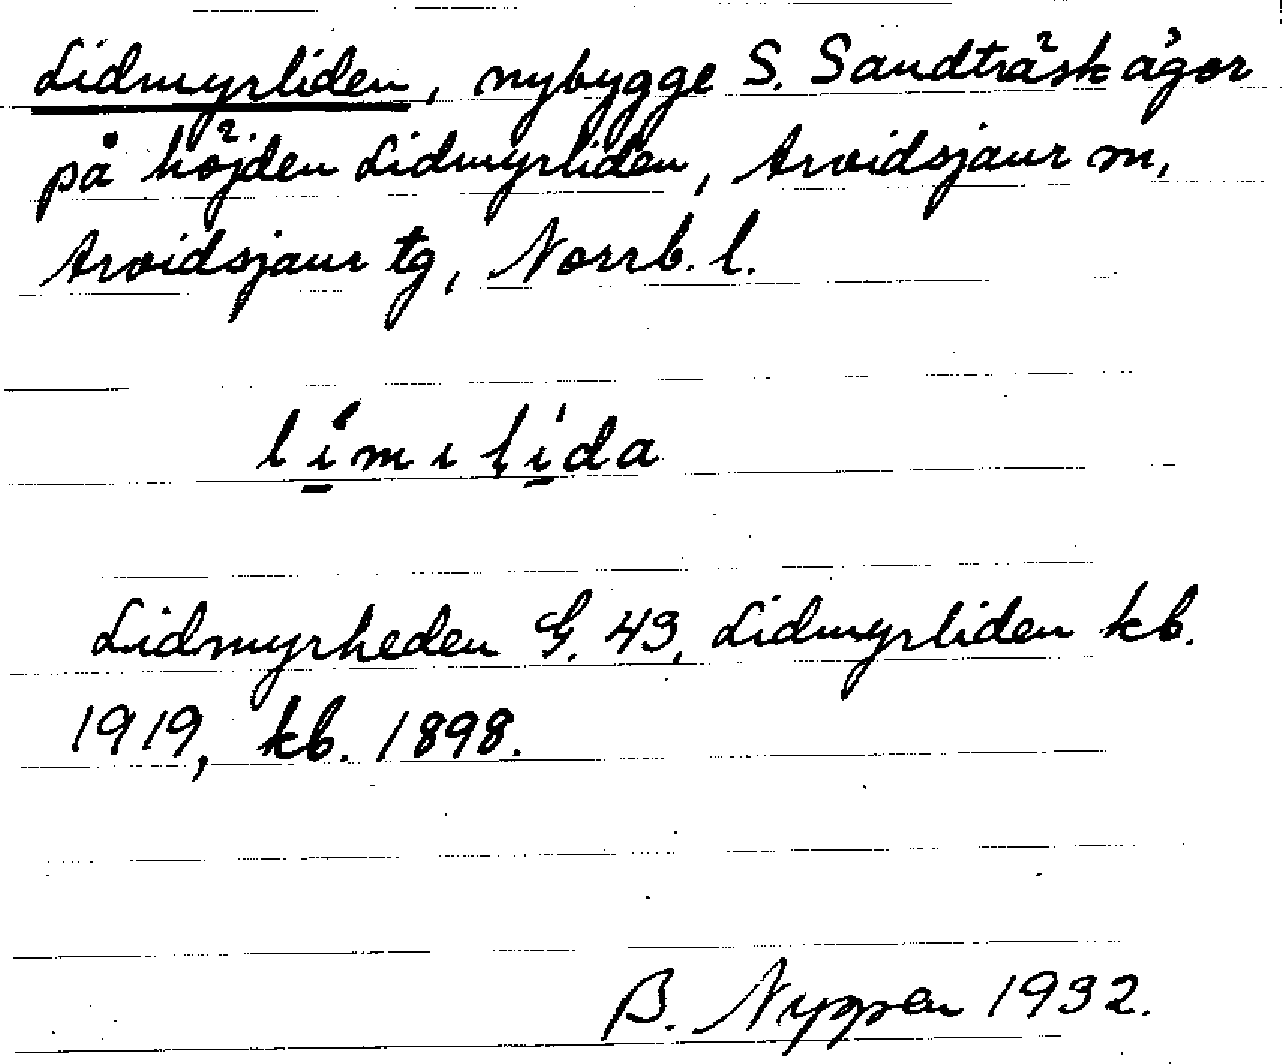 Lidmyrliden, nybygge S. Sandträsk ägor
på höjden Lidmyrliden, Arvidsjaur sn,
Arvidsjaur tg, Norrb. l.
límılída
Lidmyrheden G. 43, Lidmyrliden kb.
1919, kb. 1898.
B. Nyppen 1932.